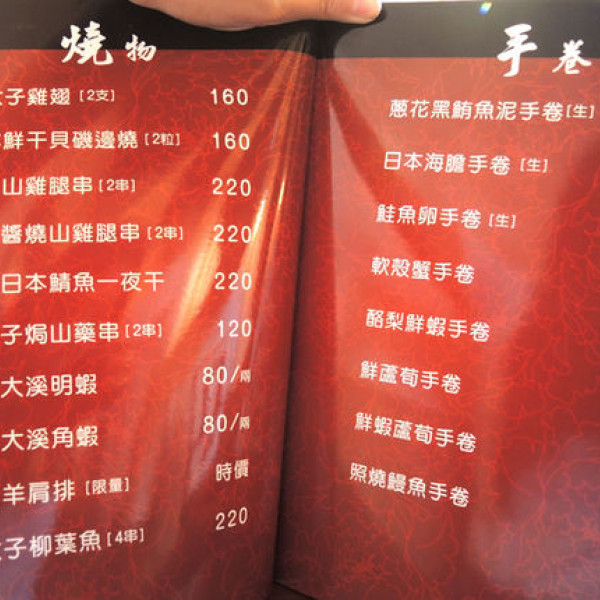 燒物
子雞翅 [2支] 160
鮮干貝磯邊燒 [2粒] 160
山雞腿串 [2串] 220
醬燒山雞腿串 [2串] 220
日本鯖魚一夜干 220
子焗山藥串 [2串] 120
大溪明蝦 80/兩
大溪角蝦 80/兩
羊肩排 [限量] 時價
子柳葉魚 [4串] 220
手卷
蔥花黑鮪魚泥手卷 [生]
日本海膽手卷 [生]
鮭魚卵手卷 [生]
軟殼蟹手卷
酪梨鮮蝦手卷
鮮蘆荀手卷
鮮蝦蘆荀手卷
照燒鰻魚手卷